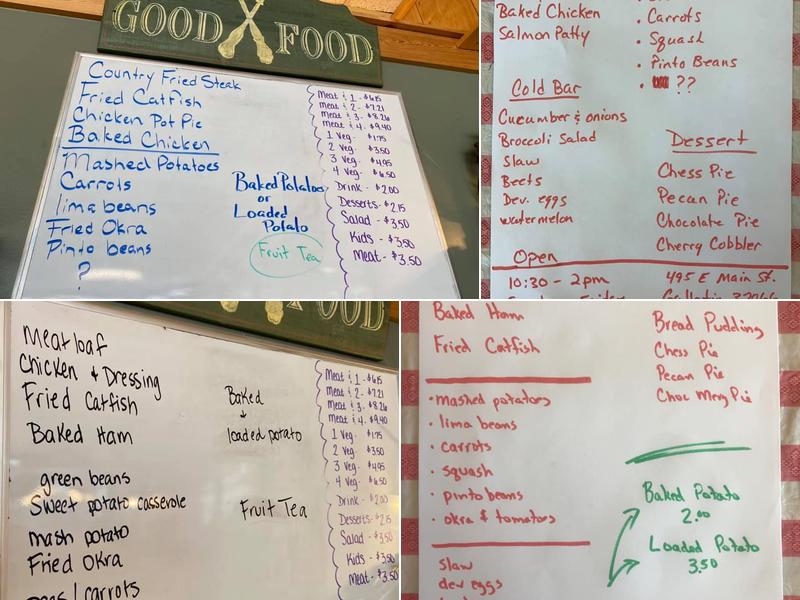 GOOD FOOD
Country Fried Steak
Fried Catfish
Chicken Pot Pie
Baked Chicken
Mashed Potatoes
Carrots
lima beans
Fried Okra
Pinto beans
?
Baked Potatoes
or
Loaded
Potato
Fruit Tea
Meat & 1 - $6.15
Meat & 2 - $7.21
Meat & 3 - $8.26
Meat & 4 - $9.40
1 Veg - $1.75
2 Veg - $3.50
3 Veg - $4.95
4 Veg - $6.50
Drink - $2.00
Desserts - $2.15
Salad - $3.50
Kids - $3.50
Meat - $3.50
Baked Chicken
Salmon Patty
• Carrots
• Squash
• Pinto Beans
• ??
Cold Bar
Cucumber & onions
Broccoli Salad
Slaw
Beets
Dev. eggs
watermelon
Dessert
Chess Pie
Pecan Pie
Chocolate Pie
Cherry Cobbler
Open
10:30 - 2pm
495 E Main St.
OOD
Meatloaf
Chicken & Dressing
Fried Catfish
Baked Ham
green beans
Sweet potato casserole
mash potato
Fried Okra
peas / carrots
Baked
loaded potato
Fruit Tea
Meat & 1 - $6.15
Meat & 2 - $7.21
Meat & 3 - $8.26
Meat & 4 - $9.40
1 Veg - $1.75
2 Veg - $3.50
3 Veg - $4.95
4 Veg - $6.50
Drink - $2.00
Desserts - $2.15
Salad - $3.50
Kids - $3.50
Meat - $3.50
Baked Ham
Fried Catfish
• mashed potatoes
• lima beans
• carrots
• squash
• pinto beans
• okra & tomatoes
slaw
dev eggs
Bread Pudding
Chess Pie
Pecan Pie
Choc Mery Pie
Baked Potato
2.00
Loaded Potato
3.50